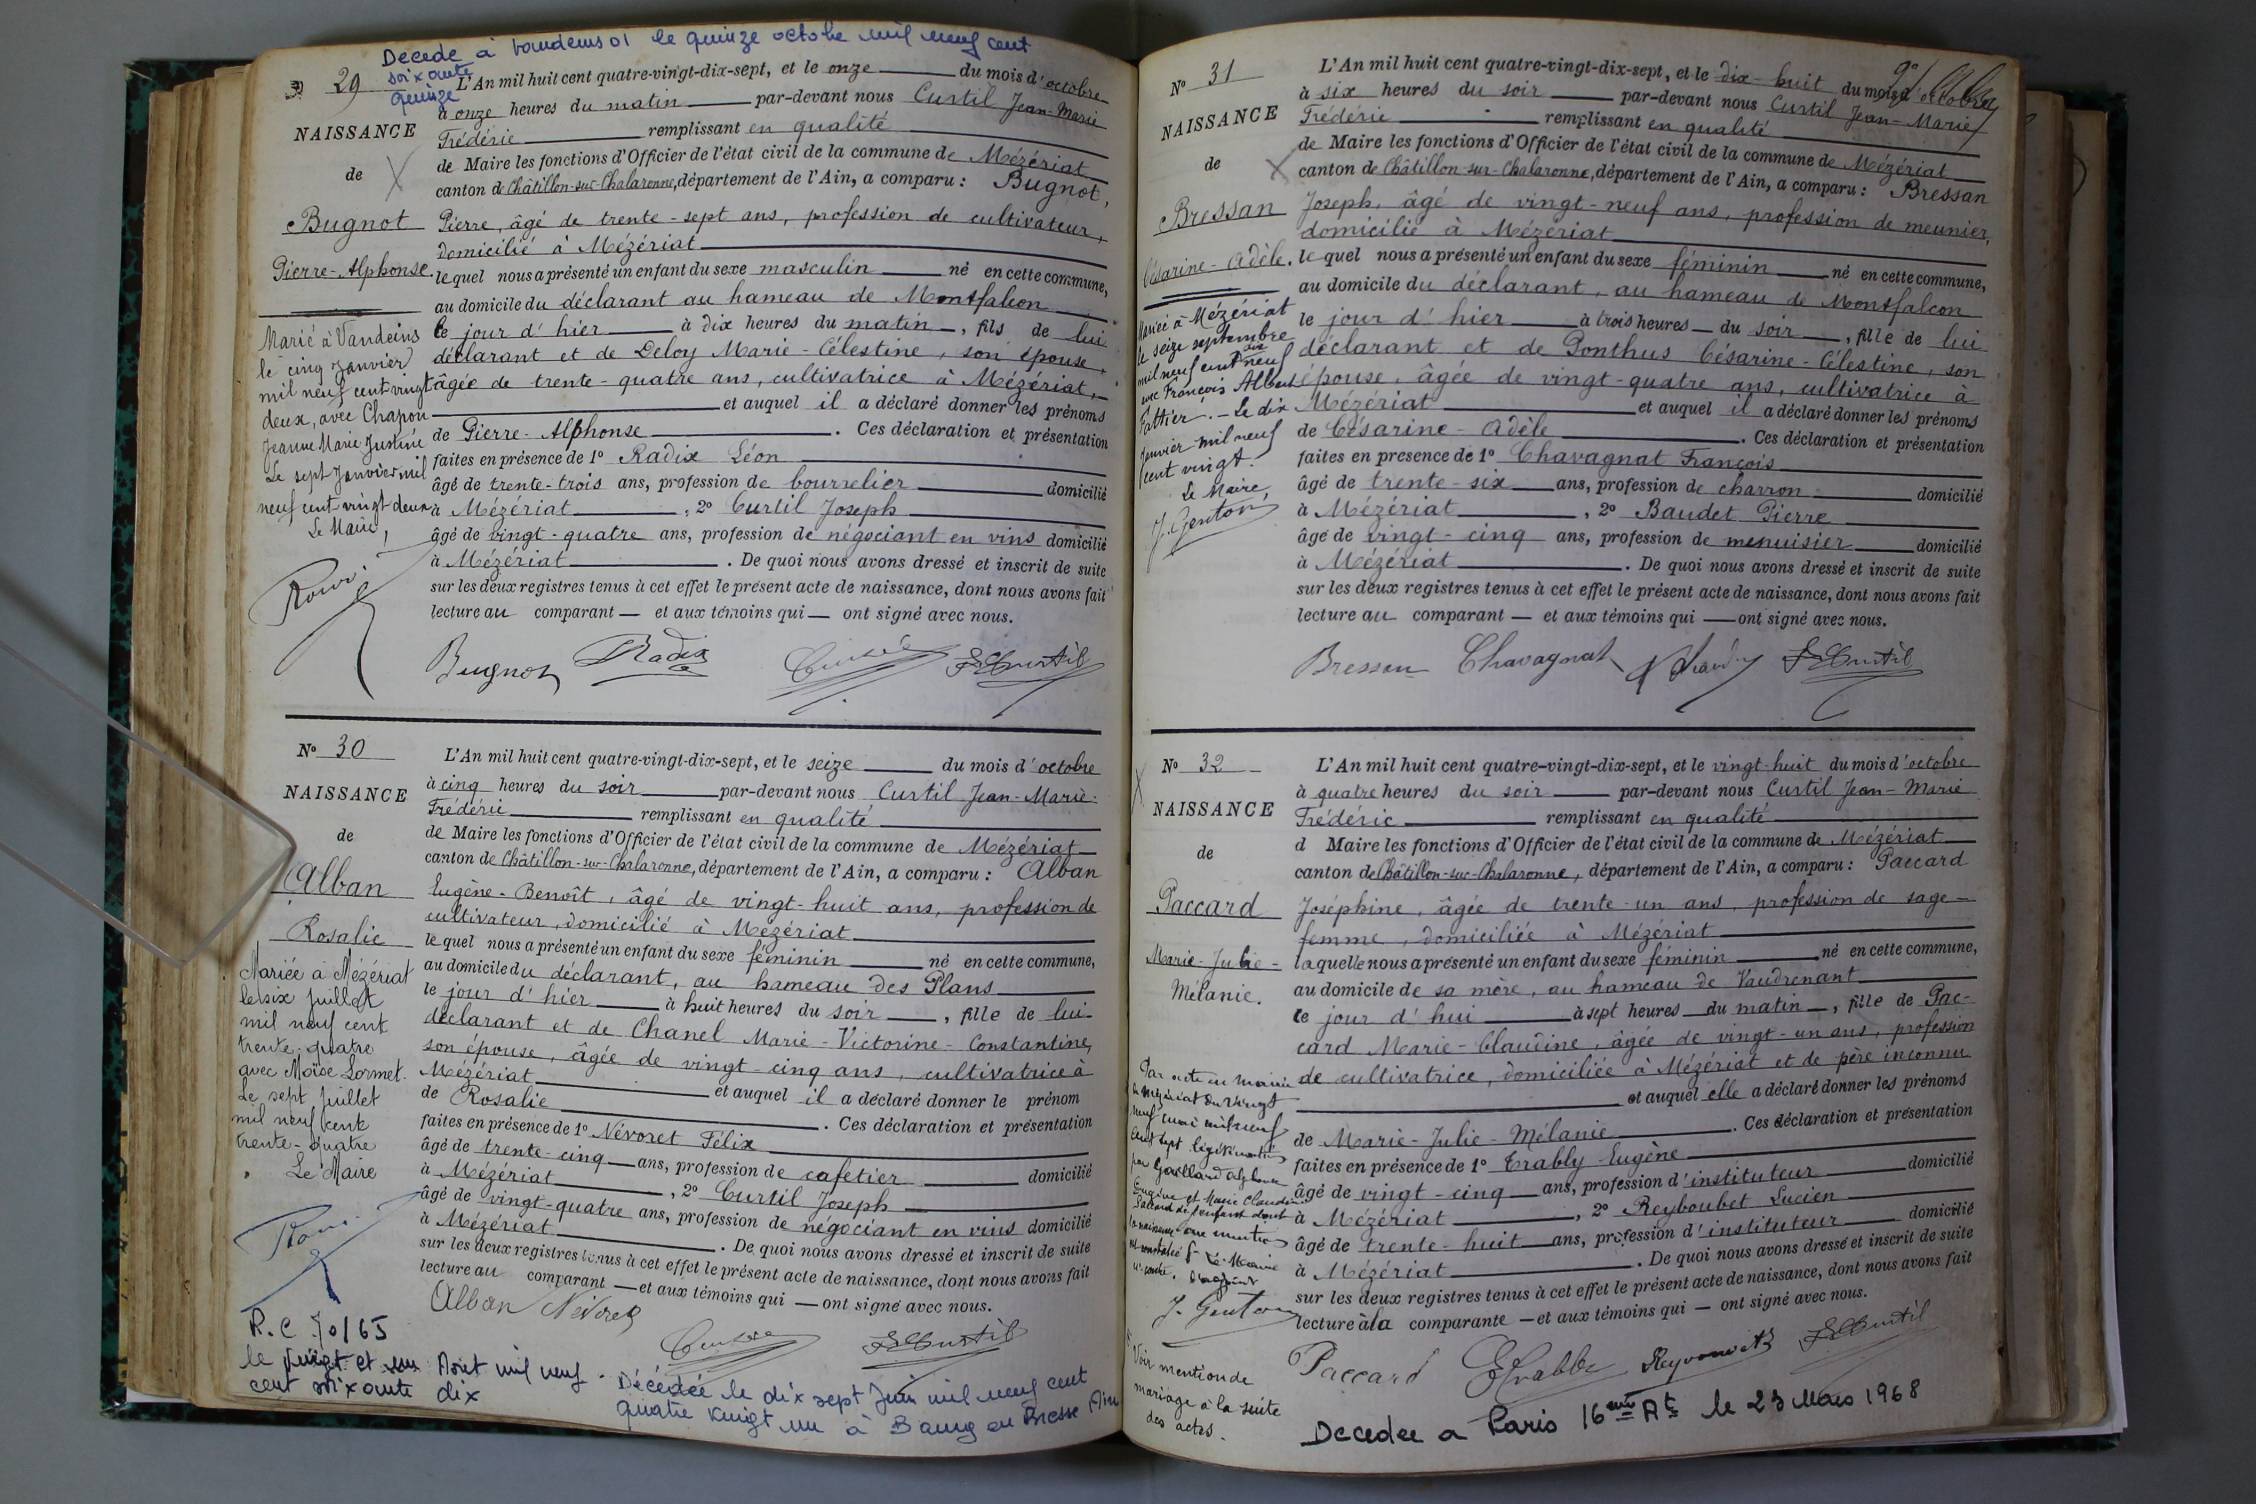 Decede à Vandeins 01 le quinze octobre mil neuf cent
soixante
quinze
29
NAISSANCE
de
Bugnot
Pierre-Alphonse.
Marié à Vandeins
le cinq Janvier
mil neuf cent vingt
deux, avec Chapon
Jeanne Marie Justine
Le sept Janvier mil
neuf cent vingt deux
Le Maire,
L'An mil huit cent quatre-vingt-dix-sept, et le onze du mois d'octobre
à onze heures du matin par-devant nous Curtil Jean-Marie
Frédéric remplissant en qualité
de Maire les fonctions d'Officier de l'état civil de la commune de Mézériat
canton de Châtillon-sur-Chalaronne, département de l'Ain, a comparu : Bugnot,
Pierre, âgé de trente-sept ans, profession de cultivateur,
domicilié à Mézériat
lequel nous a présenté un enfant du sexe masculin né en cette commune,
au domicile du déclarant au hameau de Montfalcon
le jour d'hier à dix heures du matin, fils de lui
déclarant et de Deloy Marie-Célestine, son épouse,
âgée de trente-quatre ans, cultivatrice à Mézériat,
et auquel il a déclaré donner les prénoms
de Pierre-Alphonse. Ces déclaration et présentation
faites en présence de 1º Radix Léon
âgé de trente-trois ans, profession de bourrelier domicilié
à Mézériat, 2º Curtil Joseph
âgé de vingt-quatre ans, profession de négociant en vins domicilié
à Mézériat. De quoi nous avons dressé et inscrit de suite
sur les deux registres tenus à cet effet le présent acte de naissance, dont nous avons fait
lecture au comparant — et aux témoins qui — ont signé avec nous.
Bugnot Radix Curtil
Nº 30
NAISSANCE
de
Alban
Rosalie
Mariée à Mézériat
le six juillet
mil neuf cent
trente-quatre
avec Moïse Lormet.
Le sept juillet
mil neuf cent
trente-quatre
Le Maire
L'An mil huit cent quatre-vingt-dix-sept, et le seize du mois d'octobre
à cinq heures du soir par-devant nous Curtil Jean-Marie-
Frédéric remplissant en qualité
de Maire les fonctions d'Officier de l'état civil de la commune de Mézériat
canton de Châtillon-sur-Chalaronne, département de l'Ain, a comparu : Alban
Eugène-Benoît, âgé de vingt-huit ans, profession de
cultivateur, domicilié à Mézériat
lequel nous a présenté un enfant du sexe féminin né en cette commune,
au domicile du déclarant, au hameau des Plans
le jour d'hier à huit heures du soir, fille de lui-
déclarant et de Chanel Marie-Victorine-Constantine,
son épouse, âgée de vingt-cinq ans, cultivatrice à
Mézériat et auquel il a déclaré donner le prénom
de Rosalie. Ces déclaration et présentation
faites en présence de 1º Névoret Félix
âgé de trente-cinq ans, profession de cafetier domicilié
à Mézériat, 2º Curtil Joseph
âgé de vingt-quatre ans, profession de négociant en vins domicilié
à Mézériat. De quoi nous avons dressé et inscrit de suite
sur les deux registres tenus à cet effet le présent acte de naissance, dont nous avons fait
lecture au comparant — et aux témoins qui — ont signé avec nous.
Alban Névoret Curtil
R.C 70/65
le vingt et un Août mil neuf
cent soixante dix
Décédée le dix sept Juin mil neuf cent
quatre vingt un à Bourg en Bresse (Ain
Nº 31
NAISSANCE
de
Bressan
Césarine-Adèle.
Mariée à Mézériat
le seize septembre
mil neuf cent dix neuf
avec François Albert
Pattier. — Le dix
Janvier mil neuf
cent vingt.
Le Maire,
J. Genton
L'An mil huit cent quatre-vingt-dix-sept, et le dix-huit du mois d'octobre
à six heures du soir par-devant nous Curtil Jean-Marie
Frédéric remplissant en qualité
de Maire les fonctions d'Officier de l'état civil de la commune de Mézériat
canton de Châtillon-sur-Chalaronne, département de l'Ain, a comparu : Bressan
Joseph, âgé de vingt-neuf ans, profession de meunier,
domicilié à Mézériat
lequel nous a présenté un enfant du sexe féminin né en cette commune,
au domicile du déclarant, au hameau de Montfalcon
le jour d'hier à trois heures du soir, fille de lui
déclarant et de Ponthus Césarine-Célestine, son
épouse, âgée de vingt-quatre ans, cultivatrice à
Mézériat et auquel il a déclaré donner les prénoms
de Césarine-Adèle. Ces déclaration et présentation
faites en présence de 1º Chavagnat François
âgé de trente-six ans, profession de charron domicilié
à Mézériat, 2º Baudet Pierre
âgé de vingt-cinq ans, profession de menuisier domicilié
à Mézériat. De quoi nous avons dressé et inscrit de suite
sur les deux registres tenus à cet effet le présent acte de naissance, dont nous avons fait
lecture au comparant — et aux témoins qui — ont signé avec nous.
Bressan Chavagnat Curtil
Nº 32
NAISSANCE
de
Paccard
Marie-Julie-
Mélanie.
Par acte en mairie
de Mézériat du vingt
neuf mai mil neuf
cent sept légitimation
J. Genton
Voir mention de
mariage à la suite
des actes.
L'An mil huit cent quatre-vingt-dix-sept, et le vingt-huit du mois d'octobre
à quatre heures du soir par-devant nous Curtil Jean-Marie
Frédéric remplissant en qualité
d Maire les fonctions d'Officier de l'état civil de la commune de Mézériat
canton de Châtillon-sur-Chalaronne, département de l'Ain, a comparu : Paccard
Joséphine, âgée de trente-un ans, profession de sage-
femme, domiciliée à Mézériat
laquelle nous a présenté un enfant du sexe féminin né en cette commune,
au domicile de sa mère, au hameau de Vaudrenant
ce jour d'hui à sept heures du matin, fille de Pac-
card Marie-Claudine, âgée de vingt-un ans, profession
de cultivatrice, domiciliée à Mézériat et de père inconnu
et auquel elle a déclaré donner les prénoms
de Marie-Julie-Mélanie. Ces déclaration et présentation
faites en présence de 1º Trably Eugène
âgé de vingt-cinq ans, profession d'instituteur domicilié
à Mézériat, 2º Reyboubet Lucien
âgé de trente-huit ans, profession d'instituteur domicilié
à Mézériat. De quoi nous avons dressé et inscrit de suite
sur les deux registres tenus à cet effet le présent acte de naissance, dont nous avons fait
lecture à la comparante — et aux témoins qui — ont signé avec nous.
Paccard Curtil
Decedee a Paris 16eme At le 23 Mars 1968